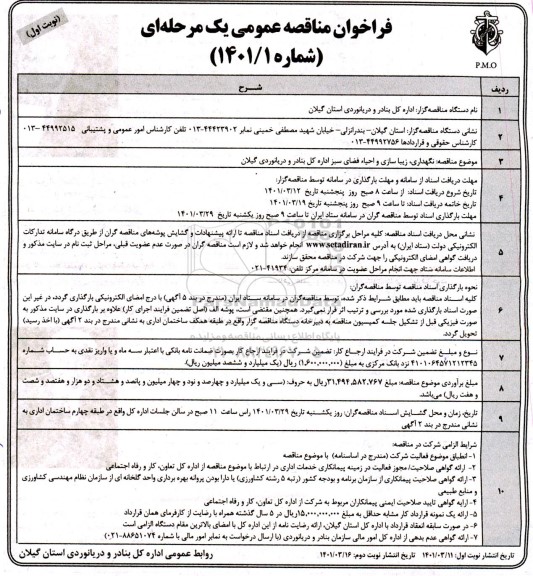 فراخوان مناقصه عمومی یک مرحله‌ای
(شماره ۱۴۰۱/۱)
(نوبت اول)
P.M.O
ردیف
شرح
۱
نام دستگاه مناقصه‌گزار: اداره کل بنادر و دریانوردی استان گیلان
۲
نشانی دستگاه مناقصه‌گزار: استان گیلان- بندرانزلی- خیابان شهید مصطفی خمینی نمابر ۴۴۴۲۳۹۰۲-۰۱۳ تلفن کارشناس امور عمومی و پشتیبانی ۴۴۹۹۲۵۱۵ -۰۱۳
کارشناس حقوقی و قراردادها ۴۴۹۹۲۷۵۶-۰۱۳
۳
موضوع مناقصه: نگهداری، زیبا سازی و احیاء فضای سبز اداره کل بنادر و دریانوردی گیلان
۴
مهلت دریافت اسناد از سامانه و مهلت بارگذاری در سامانه توسط مناقصه‌گزار:
تاریخ شروع دریافت اسناد: از ساعت ۸ صبح روز پنجشنبه تاریخ ۱۴۰۱/۰۳/۱۲
تاریخ خاتمه دریافت اسناد: تا ساعت ۹ صبح روز پنجشنبه تاریخ ۱۴۰۱/۰۳/۱۹
مهلت بارگذاری اسناد توسط مناقصه گران در سامانه ستاد ایران تا ساعت ۹ صبح روز یکشنبه تاریخ ۱۴۰۱/۰۳/۲۹
۵
نشانی محل دریافت اسناد مناقصه: کلیه مراحل برگزاری مناقصه از دریافت اسناد مناقصه تا ارائه پیشنهادات و گشایش پوشه‌های مناقصه گران از طریق درگاه سامانه تدارکات
الکترونیکی دولت (ستاد ایران) به آدرس www.setadiran.ir انجام خواهد شد و لازم است مناقصه گران در صورت عدم عضویت قبلی، مراحل ثبت نام در سایت مذکور و
دریافت گواهی امضای الکترونیکی را جهت شرکت در مناقصه محقق سازند.
اطلاعات سامانه ستاد جهت انجام مراحل عضویت در سامانه مرکز تلفن: ۴۱۹۳۴-۰۲۱
۶
نحوه بارگذاری اسناد مناقصه توسط مناقصه‌گران:
کلیه اسناد مناقصه باید مطابق شرایط ذکر شده، توسط مناقصه‌گران در سامانه ستاد ایران (مندرج در بند ۵ آگهی) با درج امضای الکترونیکی بارگذاری گردد، در غیر این
صورت اسناد بارگذاری شده مورد بررسی و ترتیب اثر قرار نمی‌گیرد. همچنین مقتضی است، پوشه الف (اصل تضمین فرایند اجرای کار) علاوه بر بارگذاری در سایت مذکور به
صورت فیزیکی قبل از تشکیل جلسه کمیسیون مناقصه به دبیرخانه دستگاه مناقصه گزار واقع در طبقه همکف ساختمان اداری به نشانی مندرج در بند ۲ آگهی (با اخذ رسید)
تحویل گردد.
۷
نوع و مبلغ تضمین شرکت در فرایند ارجاع کار: تضمین شرکت در فرایند ارجاع کار بصورت ضمانت نامه بانکی با اعتبار سه ماه و یا واریز نقدی به حساب شماره
۴۱۰۱۰۶۴۵۷۱۲۱۲۳۴۵ نزد بانک مرکزی به مبلغ (۱,۶۰۰,۰۰۰,۰۰۰) ریال (یک میلیارد و ششصد میلیون ریال).
۸
مبلغ برآوردی موضوع مناقصه: مبلغ ۳۱,۴۹۴,۵۸۲,۷۶۷ ریال به حروف: (سی و یک میلیارد و چهارصد و نود و چهار میلیون و پانصد و هشتاد و دو هزار و هفتصد و شصت
و هفت ریال) می‌باشد.
۹
تاریخ، زمان و محل گشایش اسناد مناقصه‌گران: روز یکشنبه تاریخ ۱۴۰۱/۰۳/۲۹ راس ساعت ۱۱ صبح در سالن جلسات اداره کل واقع در طبقه چهارم ساختمان اداری به
نشانی مندرج در بند ۲ آگهی
۱۰
شرایط الزامی شرکت در مناقصه:
۱- انطباق موضوع فعالیت شرکت (مندرج در اساسنامه) با موضوع مناقصه
۲- ارائه گواهی صلاحیت/مجوز فعالیت در زمینه پیمانکاری خدمات اداری در ارتباط با موضوع مناقصه از اداره کل تعاون، کار و رفاه اجتماعی
۳- ارائه گواهی صلاحیت پیمانکاری از سازمان برنامه و بودجه کشور (رتبه ۵ رشته کشاورزی) یا دارا بودن پروانه بهره برداری واحد گلخانه ای از سازمان نظام مهندسی کشاورزی
و منابع طبیعی
۴- ارایه گواهی تایید صلاحیت ایمنی پیمانکاران مربوط به شرکت از اداره کل تعاون، کار و رفاه اجتماعی
۵- ارائه یک نمونه قرارداد کار مشابه حداقل به مبلغ ۱۵,۰۰۰,۰۰۰,۰۰۰ ریال در ۵ سال گذشته همراه با رضایت از کارفرمای همان قرارداد
۶- در صورت سابقه انعقاد قرارداد با اداره کل استان گیلان، ارائه رضایت نامه از این اداره کل با امضای بالاترین مقام دستگاه الزامی است
۷- ارائه گواهی عدم بدهی از اداره کل امور مالی سازمان بنادر و دریانوردی (با ارسال درخواست به نمابر امور مالی با شماره ۸۸۶۵۱۰۷۴-۰۲۱)
تاریخ انتشار نوبت اول: ۱۴۰۱/۰۳/۱۱ تاریخ انتشار نوبت دوم: ۱۴۰۱/۰۳/۱۶
روابط عمومی اداره کل بنادر و دریانوردی استان گیلان